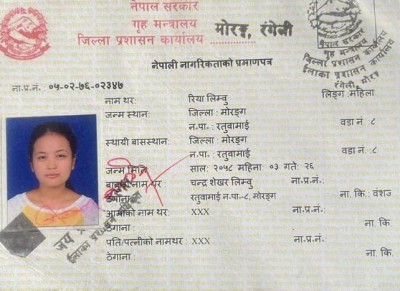 नेपाल सरकार
गृह मन्त्रालय
जिल्ला प्रशासन कार्यालय मोरङ, रंगेली
नेपाली नागरिकताको प्रमाणपत्र
ना.प्र.नं. ०५-०२-७६-०२३४७
लिङ्ग: महिला
नाम थर: रिया लिम्बु
जन्म स्थान: जिल्ला : मोरङ्ग
न.पा.: रतुवामाई वडा नं. ८
स्थायी बासस्थान: जिल्ला : मोरङ्ग
न.पा. : रतुवामाई वडा नं. ८
जन्म मिति साल: २०५८ महिना: ०३ गते: २६
नाम थर: चन्द्र शेखर लिम्बु ना.प्र.नं.
ठेगाना: रतुवामाई न.पा-८, मोरङ्ग ना. कि: वंशज
आमाको नाम थर: XXX ना.प्र.नं.
ठेगाना: ना. कि
पति/पत्नीको नामथर: XXX ना.प्र.नं.
ठेगाना ना. कि.
नेपाल सरकार
गृह मन्त्रालय
जिल्ला प्रशासन कार्यालय
ईलाका प्रशासन कार्यालय
रंगेली, मोरङ